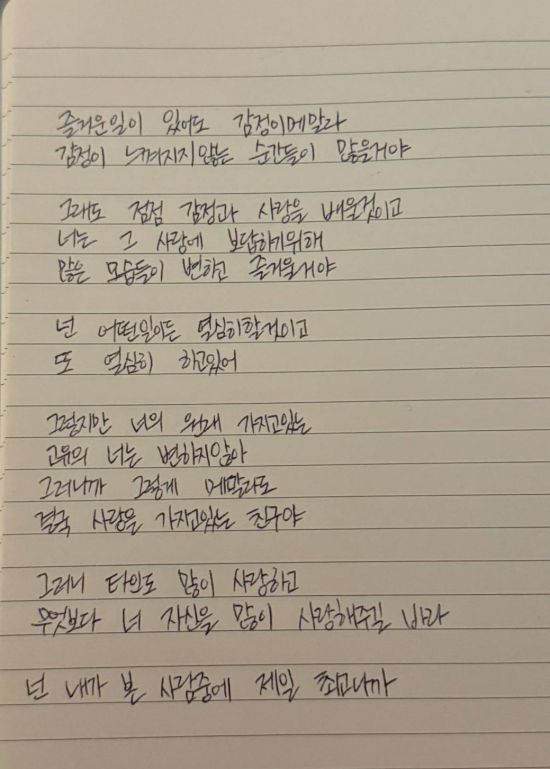 즐거운일이 있어도 감정이메말라
감정이 느껴지지않는 순간들이 많을거야
그래도 점점 감정과 사랑을 배울것이고
너는 그 사랑에 보답하기위해
많은 모습들이 변하고 즐거울거야
넌 어떤일이든 열심히할것이고
또 열심히 하고있어
그렇지만 너의 원래 가지고있는
고유의 너는 변하지않아
그러니까 그렇게 메말라도
결국 사랑을 가지고있는 친구야
그러니 타인도 많이 사랑하고
무엇보다 너 자신을 많이 사랑해주길 바라
넌 내가 본 사람중에 제일 최고니까